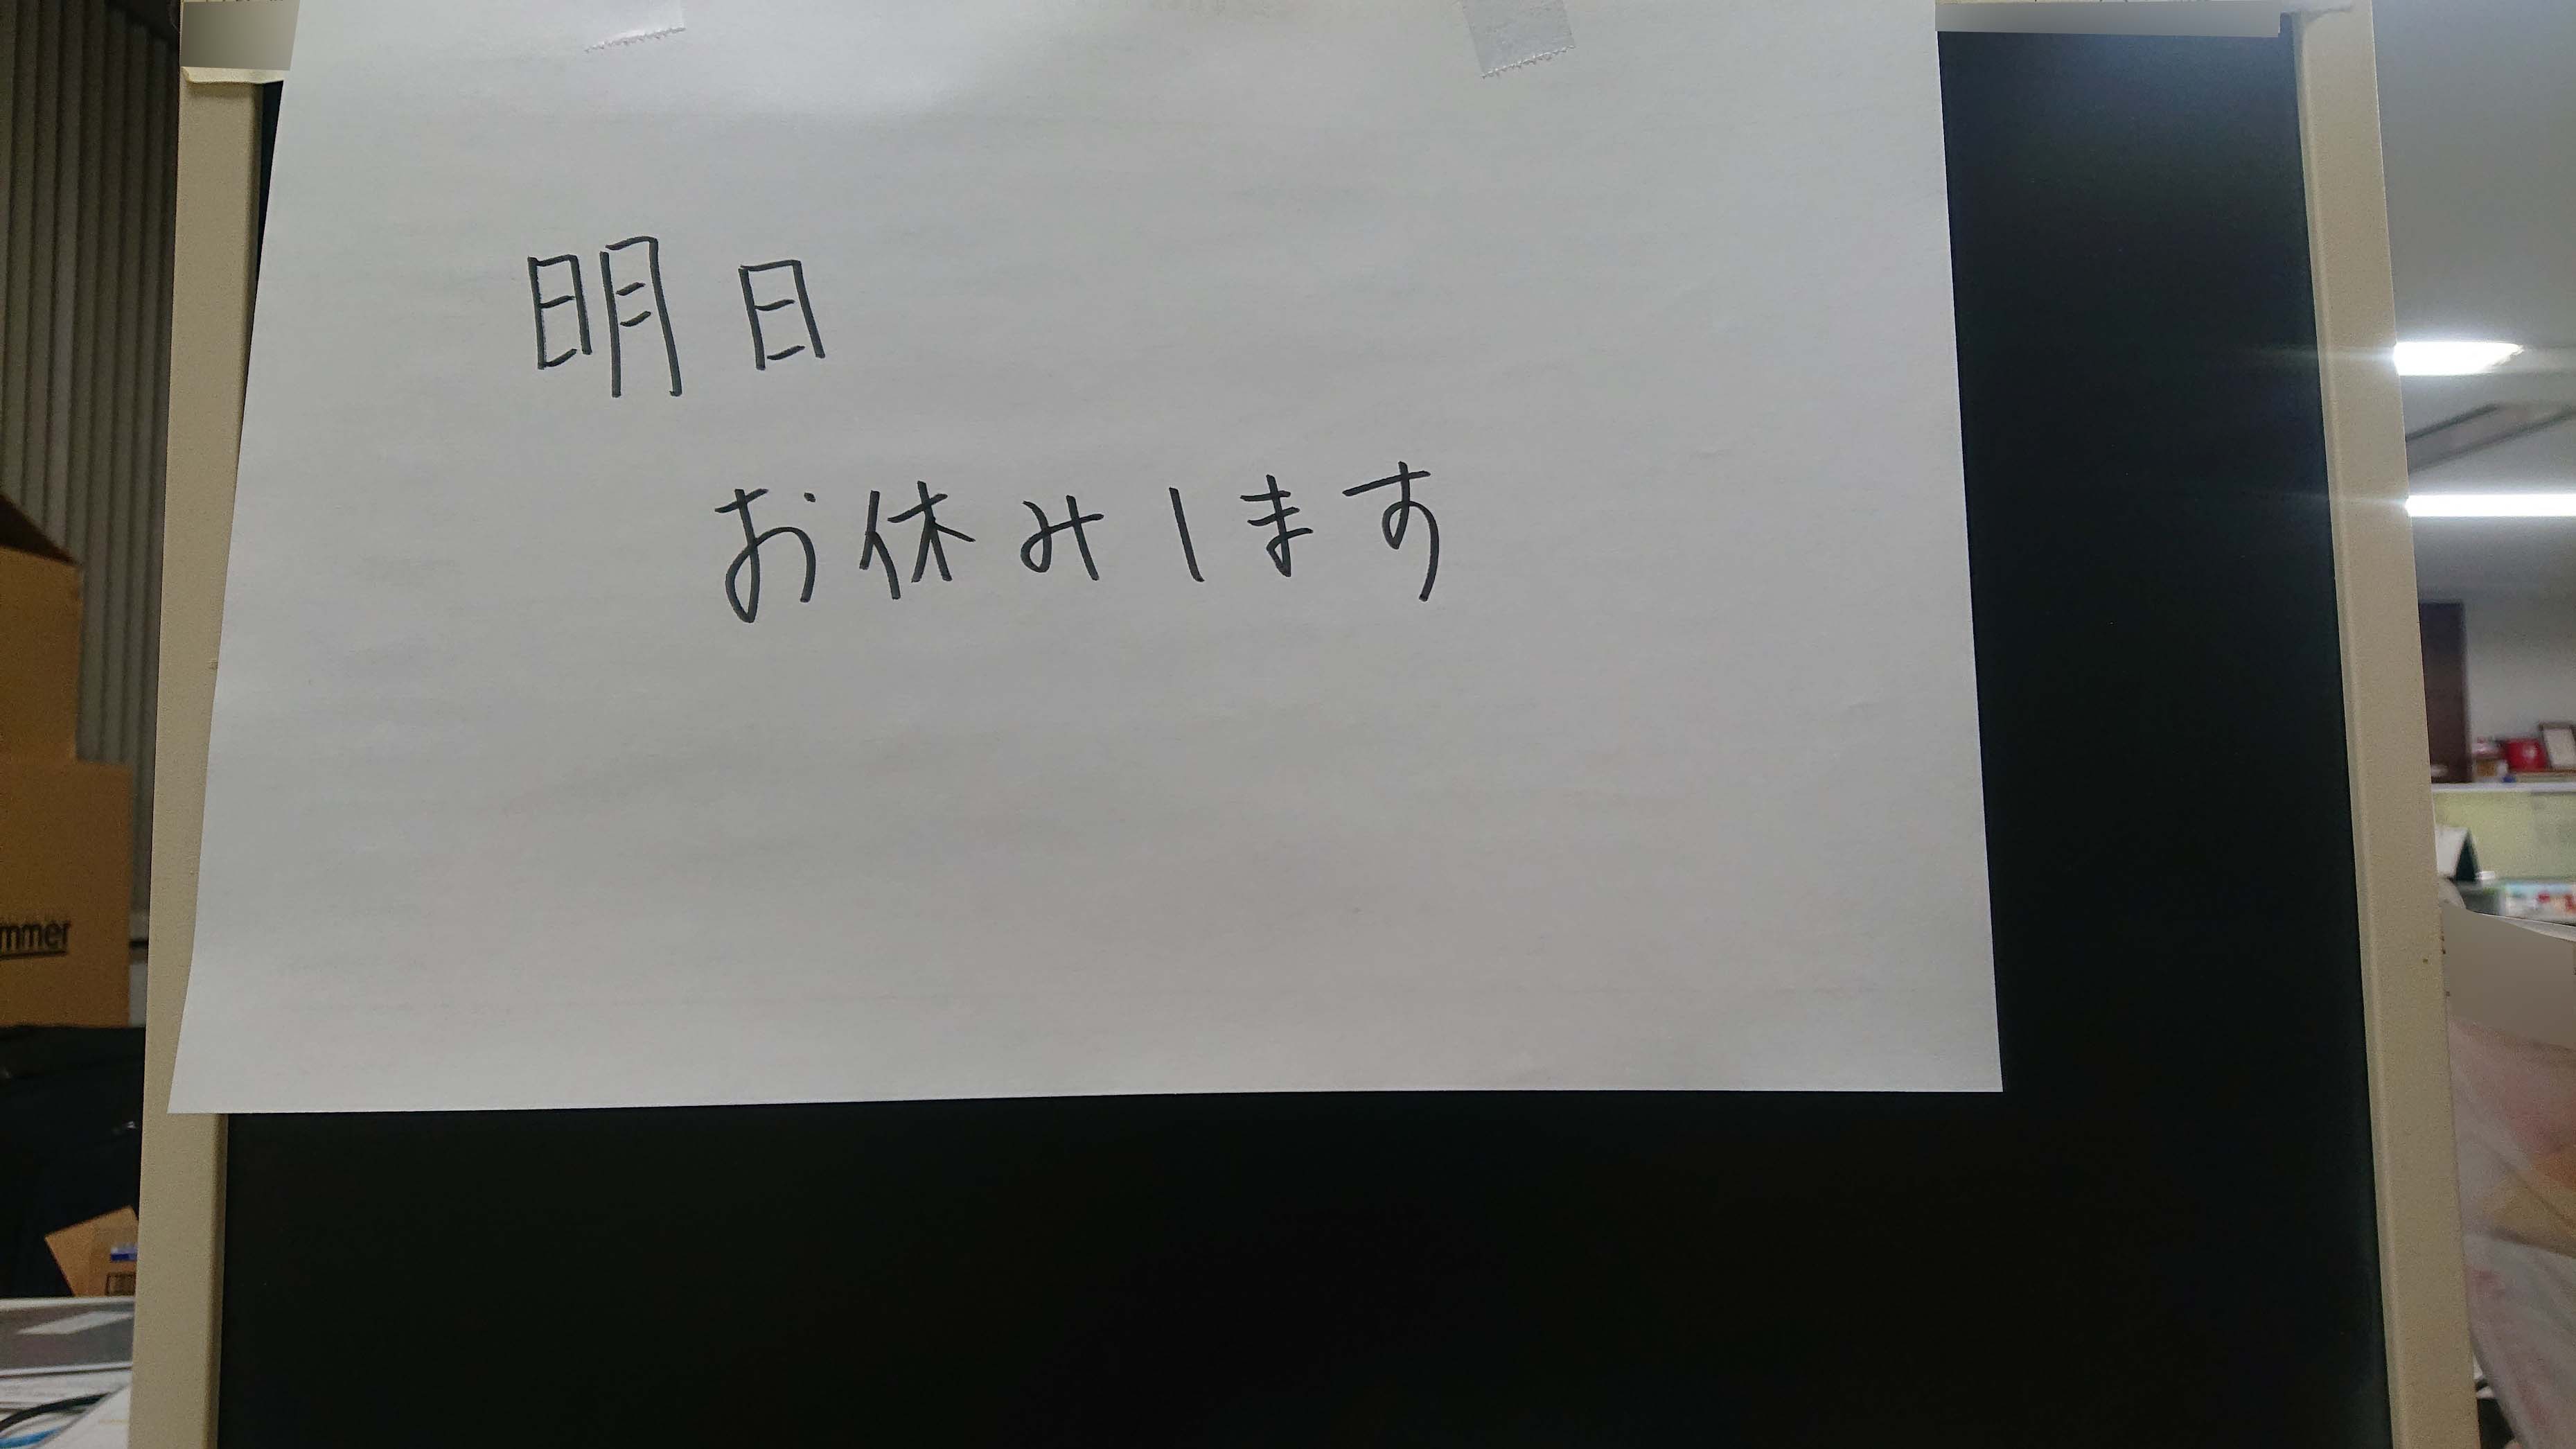 明日
お休みします
mmer